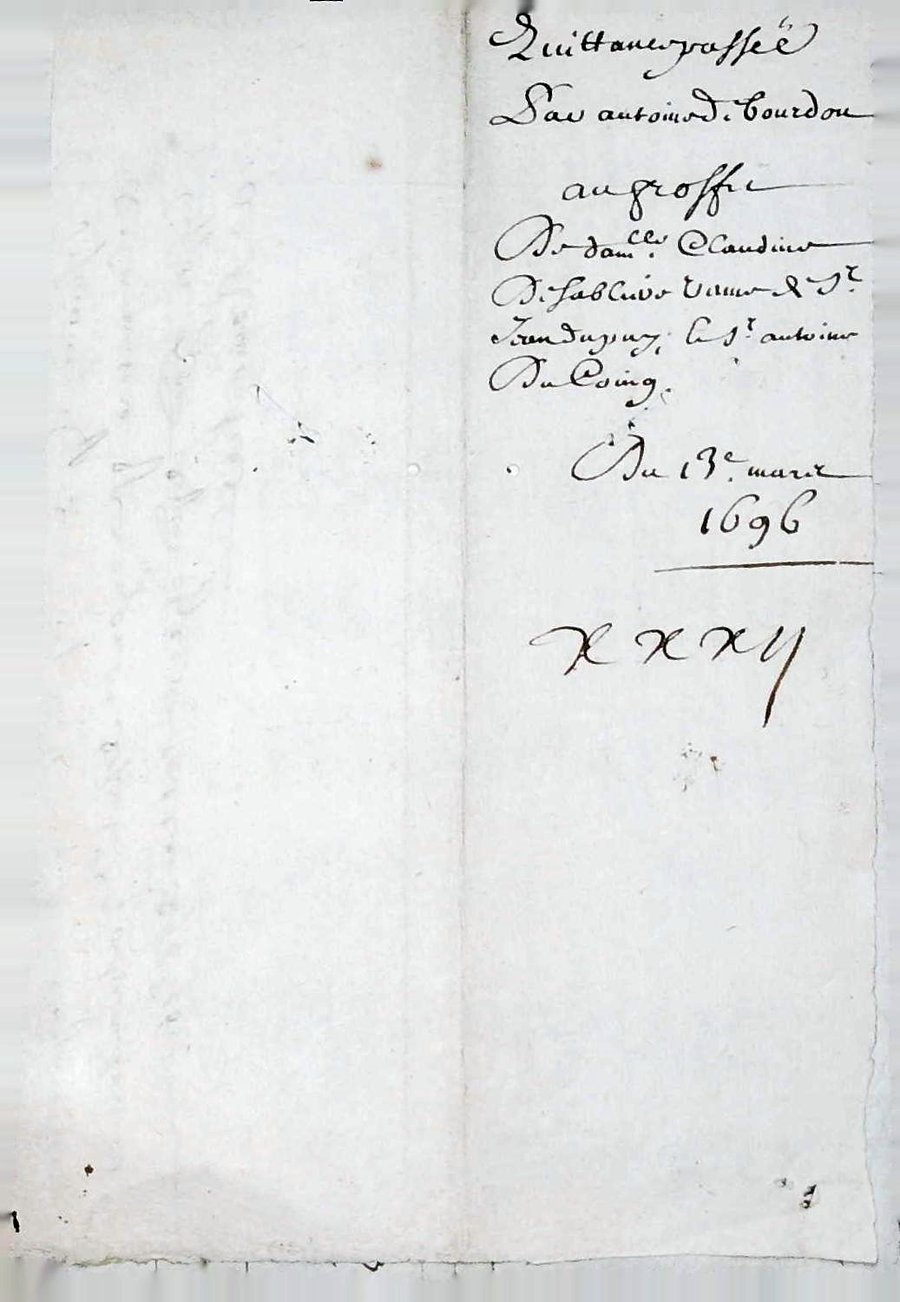 Quittance passeë
Par antoine De bourdon
au proffit
De dam.lle Claudine
Desablive vaine & Sr.
Jean dupuy, le Sr. antoine
Du Coing.
Du 13e. mars
1696
xxxij